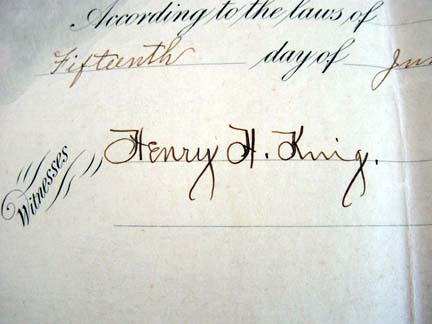 According to the laws of
Fifteenth day of
Witnesses Henry H. King.